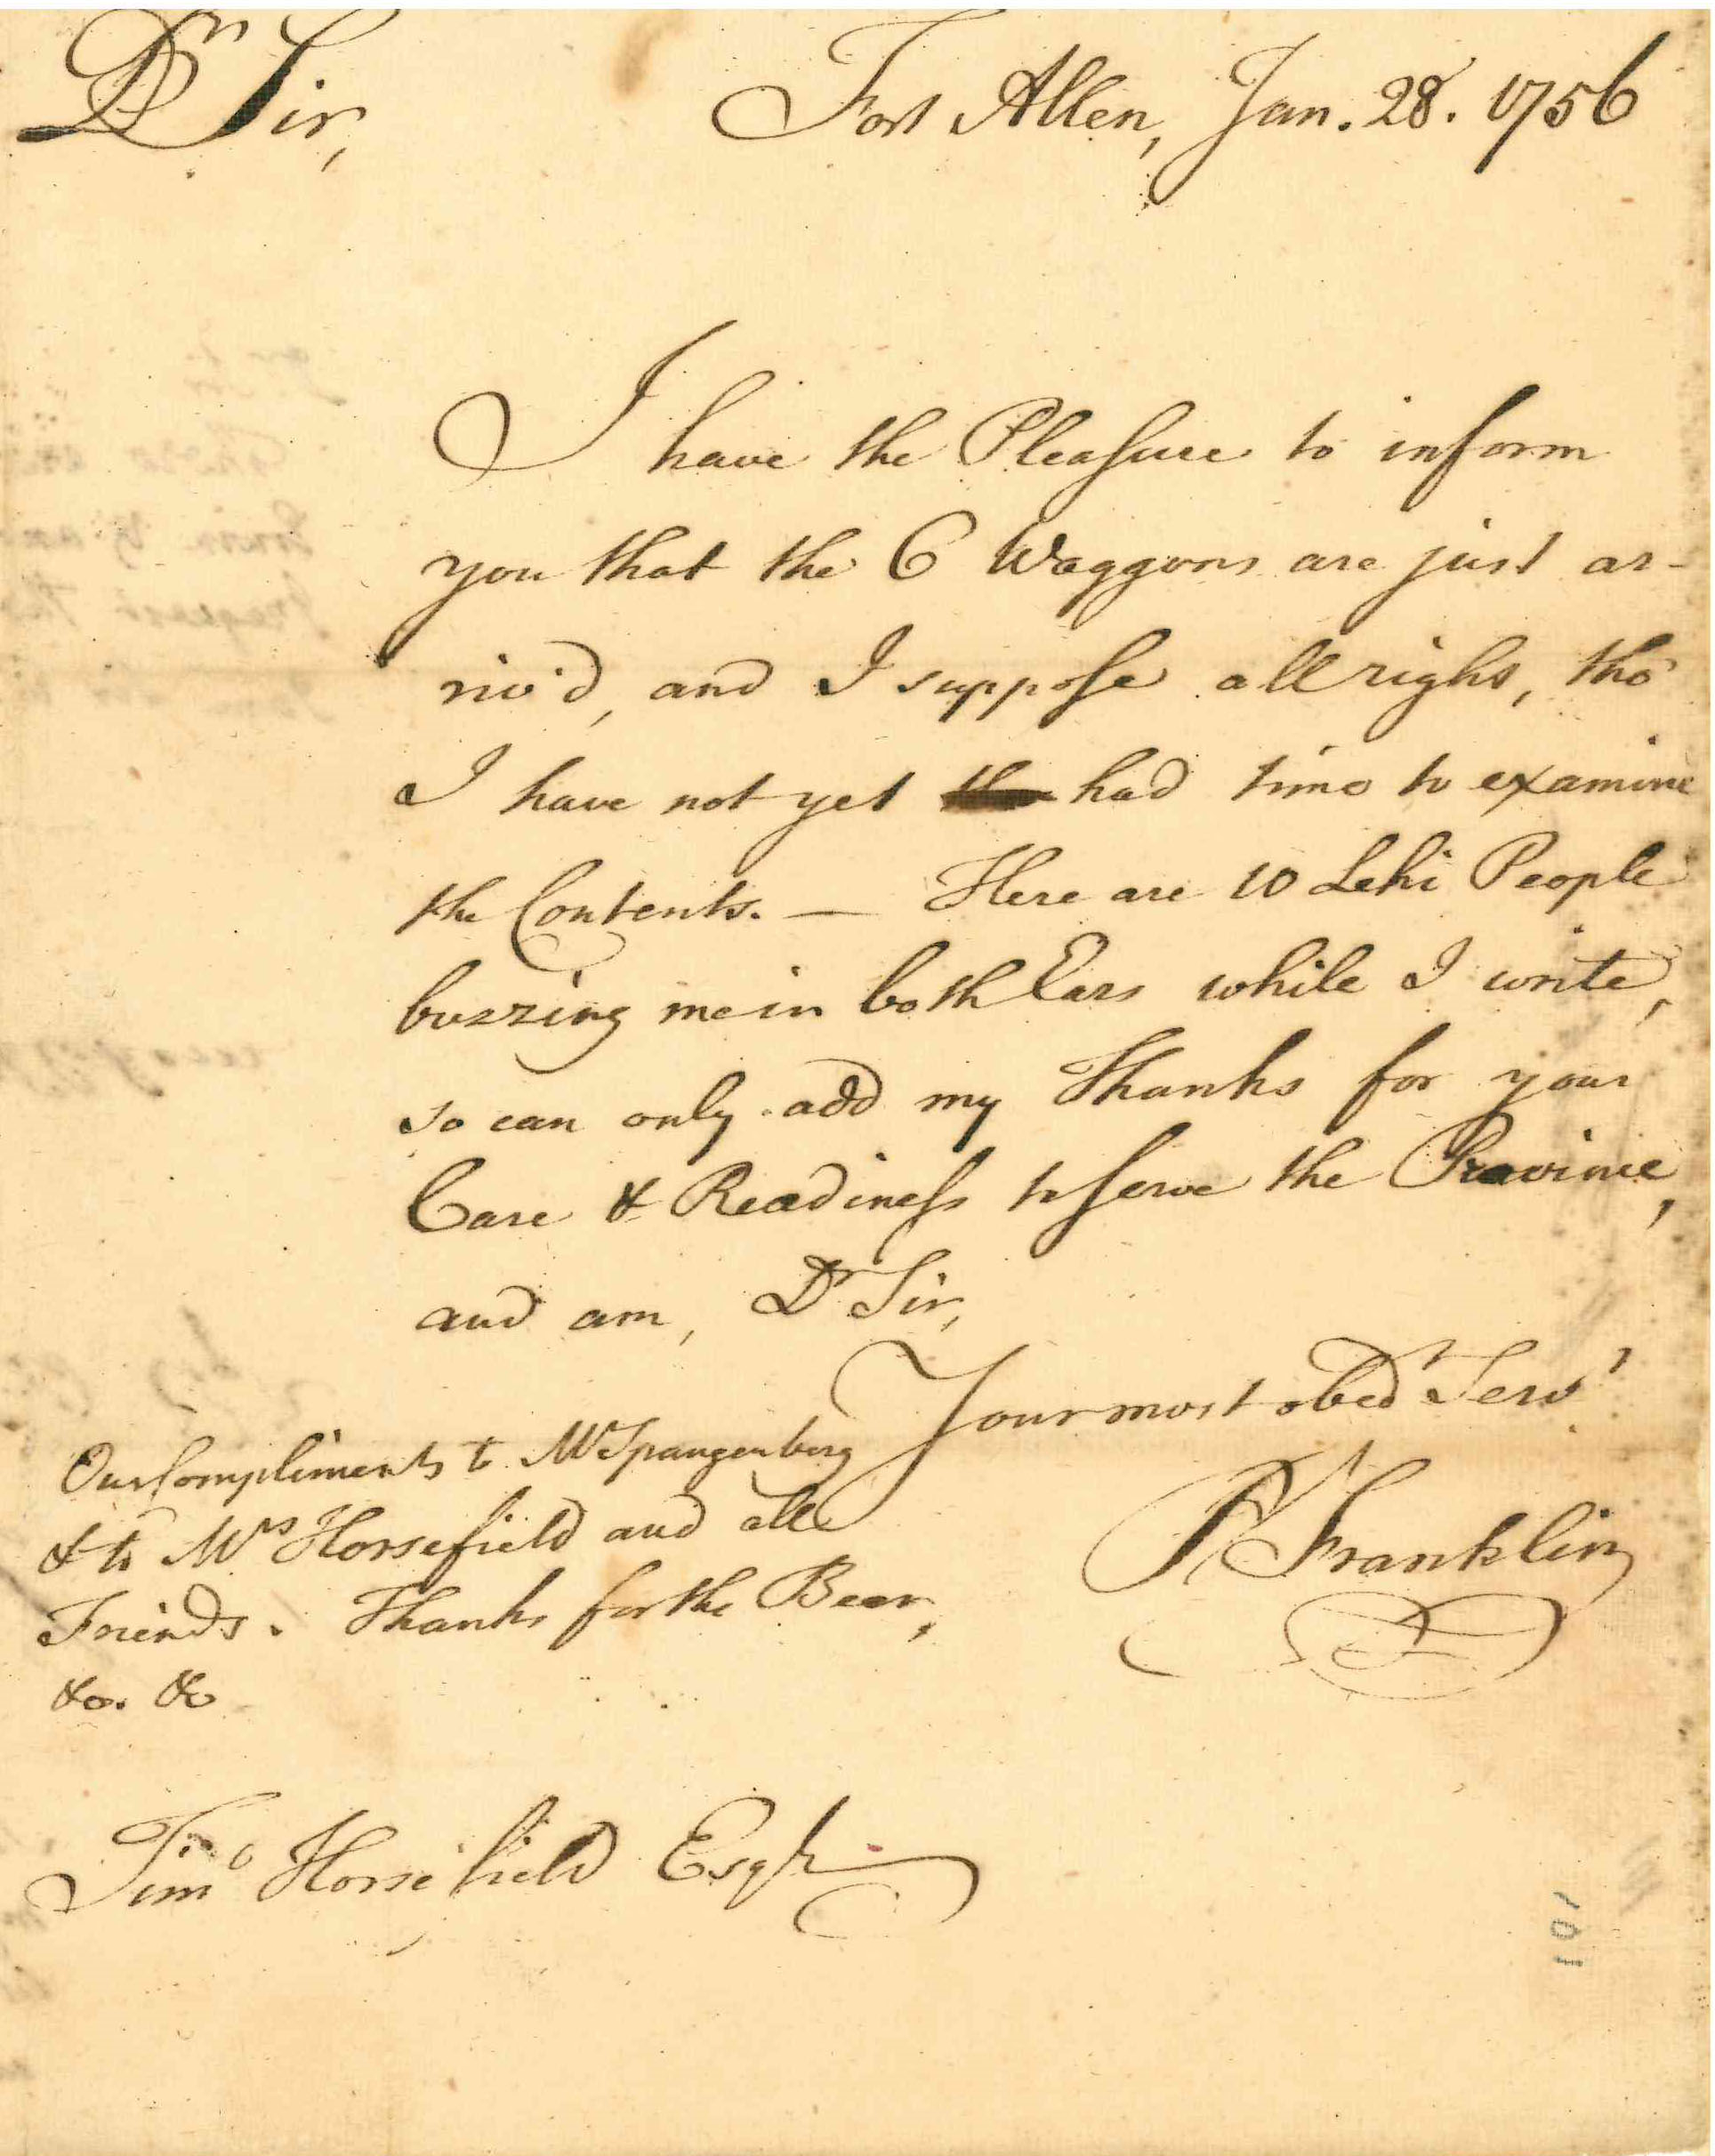 Dr Sir,
Fort Allen, Jan. 28. 1756
I have the Pleasure to inform
you that the 6 Waggons are just ar-
riv'd, and I suppose all right, tho'
I have not yet had time to examine
the Contents. — Here are 10 Lehi People
buzzing me in both Ears while I write,
so can only add my Thanks for your
Care & Readiness to serve the Province,
and am, Dr Sir,
Your most obed Servt
B Franklin
Our Compliments to Mr Spangenberg
& to Mrs Horsefield and all
Friends. Thanks for the Beer,
&c. &c
Timo Horsefield Esqr
101